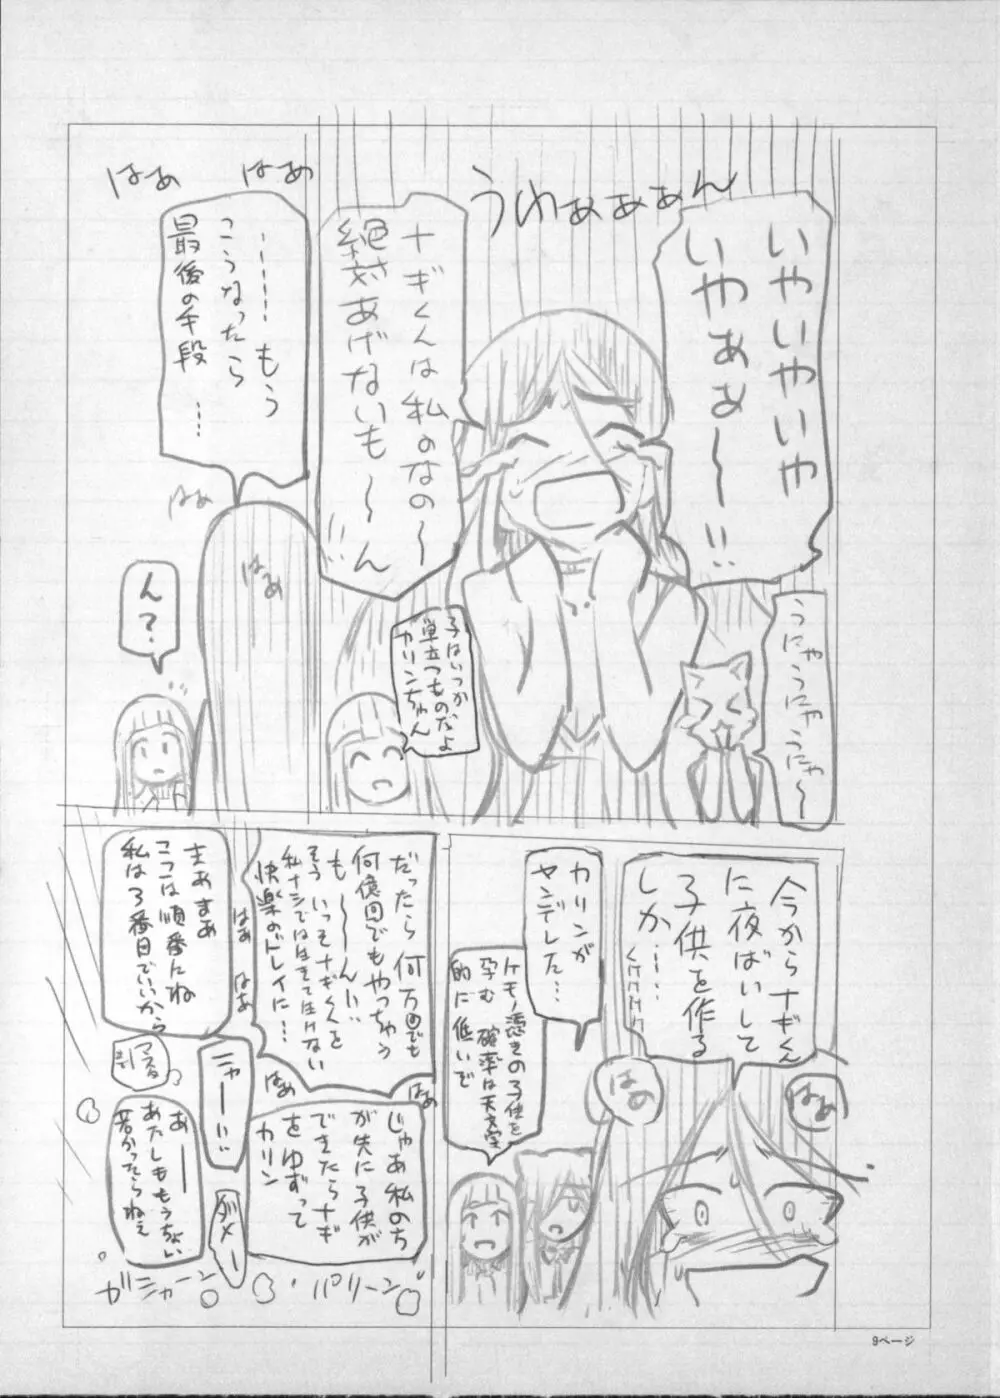 いやいやいや
いやぁぁ〜!!
うわぁぁぁん
ナギくんは私のなの〜
絶対あげないも〜〜ん!!
うにゃうにゃうにゃ〜
子はいつか
巣立つものだよ
カリンちゃん
はぁ
はぁ
………もう
こうなったら
最後の手段…
はぁ
はぁ
ん?
今からナギくん
に夜ばいして
子供を作る
しか……
くけけけけ
はぁ
はぁ
カリンが
ヤンデレした…
ケモノ憑きの子供を
孕む確率は天文学
的に低いで
だったら何万回でも
何億回でもやっちゃう
も〜〜ん!!
そういっそナギくんを
私ナシでは生きてけない
快楽のドレイに…
はぁ
はぁ
はぁ
はぁ
じゃあ私のち
が先に子供が
できたらナギ
をゆずって
カリン
まぁまぁ
ここは順番にね
私は3番目でいいから
ニャーい!!
ダメー
あー
あたしももうちょい
若かったらねぇ
ガシャーン
パリーン
9ページ